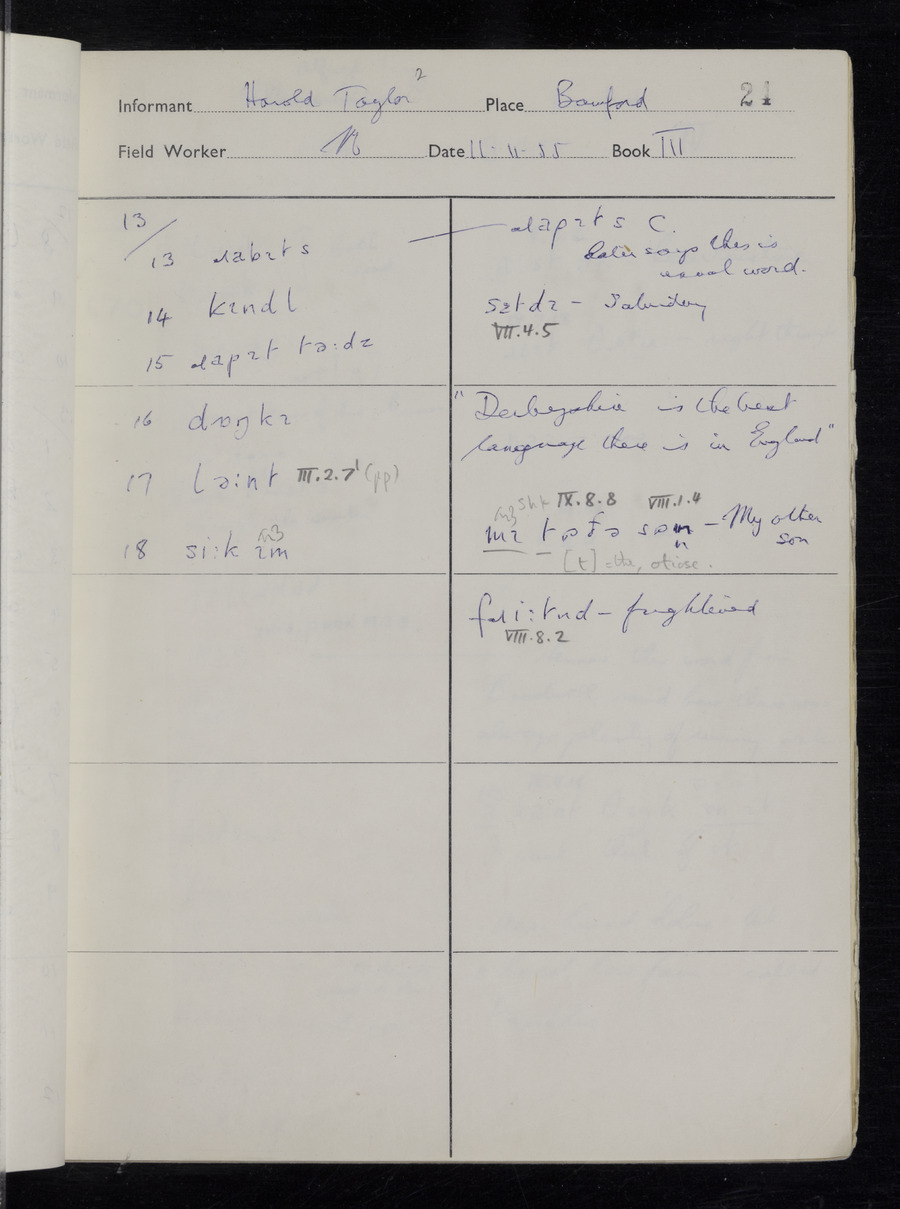 Informant Harold Taylor 2 Place Bamford 21
Field Worker Date 11-11-55 Book III
13
13 ɹabɪts
14 kɪndl
15 ɹapɪt
16 dɒŋkɪ
17 III.2.7 (pp)
18 si:k ɪm
ɹapɪts C.
Later says this is
usual word.
Saturday
VII.4.5
" Derbyshire is the best
language there is in England "
IX.8.8 VIII.1.4
mɪ – My other
son
[t] = the, otiose.
fɹi:tnd – frightened
VIII.8.2